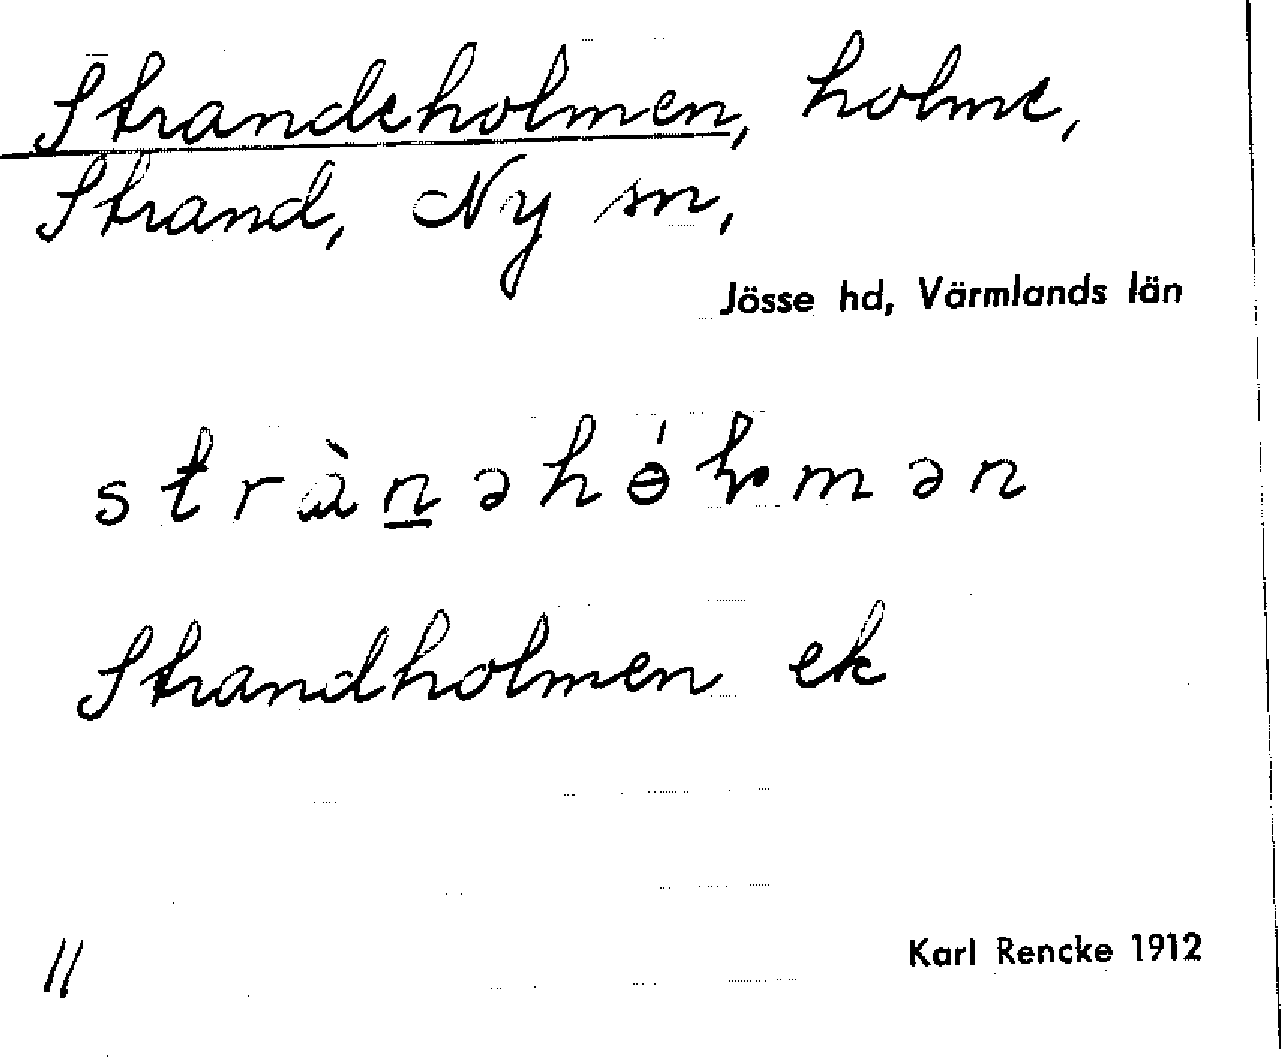 Strandeholmen, holme,
Strand, Ny sn,
Jösse hd, Värmlands län
Strandholmen ek
11
Karl Rencke 1912